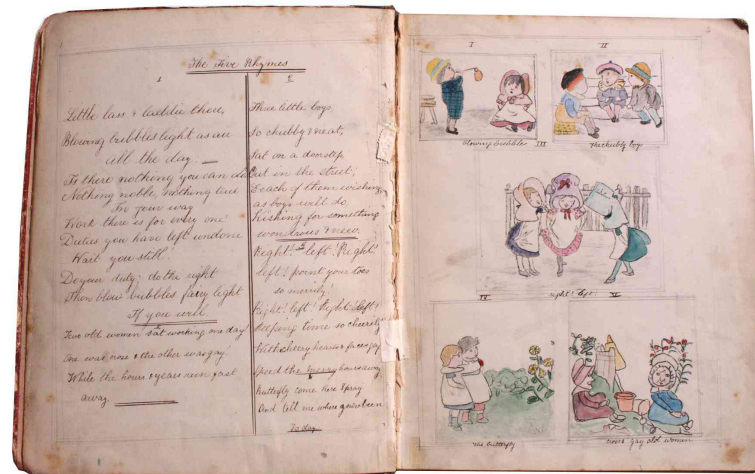 The Five Rhymes
1
Little lass & laddie there,
Blowing bubbles light as air
all the day.
Is there nothing you can do
Nothing noble, nothing true
In your way
Work there is for every one!
Duties you have left undone
Wait you still!
Do your duty; do the right
Then blow bubbles fairy light
If you will.
Two old women sat working one day
One was & the other was gay.
While the hours & years
away.
Three little boys,
So chubby & neat,
Sat on a doorstep
Out in the street;
Each of them wishing,
as boys will do
Wishing for something
wondrous & new.
Right! left! Right!
left! point your toes
so merrily!
Right! left! Right! left!
Keeping time so cheerily
With cheery hearts & faces gay
Speed the merry hours away
Butterfly come here I pray
And tell me where you've been
To day
I
II
Blowing bubbles
III
The chubby boys
right! left!
IV
V
the butterfly
gay old women